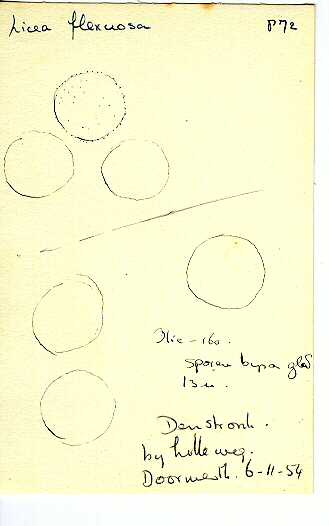 Licea flexuosa P72
Olie-160.
sporen bijna glad
13 u.
Denstronk.
by Holleweg.
Doorwerth. 6-11-54